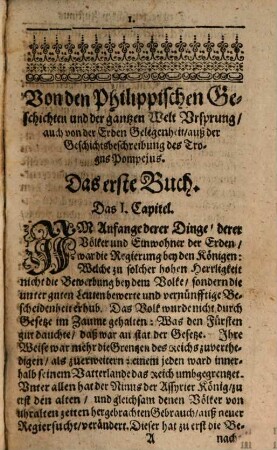 1.
Von den Philippischen Ge-
schichten und der gantzen Welt Vrsprung/
auch von der Erden Gelegenheit/auß der
Geschichtsbeschreibung des Tro-
gus Pompejus.
Das erste Buch.
Das I. Capitel.
IM Anfange derer Dinge/ derer
Völker und Einwohner der Erden/
war die Regierung bey den Königen:
Welche zu solcher hohen Herrligkeit
nicht die Bewerbung bey dem Volke/ sondern die
unter guten Leuten bewerte und vernünfftige Be-
scheidenheit erhub. Das Volk wurde nicht durch
Gesetze im Zaume gehalten: Was den Fürsten
gut dauchte/ daß war an stat der Gesetze. Ihre
Weise war mehr die Grentzen des Reichs zuverthe-
digen/ als zuerweitern: einem jeden ward inner-
halb seinem Vatterlande das Reich umbgegrentzet.
Vnter allen hat der Ninus der Assyrier König/zu
erst den alten/ und gleichsam denen Völker von
uhralten zeiten hergebrachten Gebrauch/ auß neuer
Regiersucht/ verändert. Dieser hat zu erst die Be-
A nach-